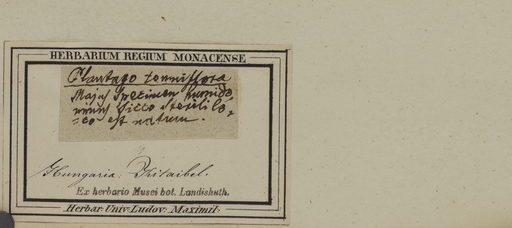 HERBARIUM REGIUM MONACENSE
Plantago tenuiflora
Majus Specimen humido
minus Sicco sterili lo=
=co est natum.
Hungaria. Kitaibel.
Ex herbario Musei bot. Landishuth.
Herbar. Univ. Ludov. Maximil.